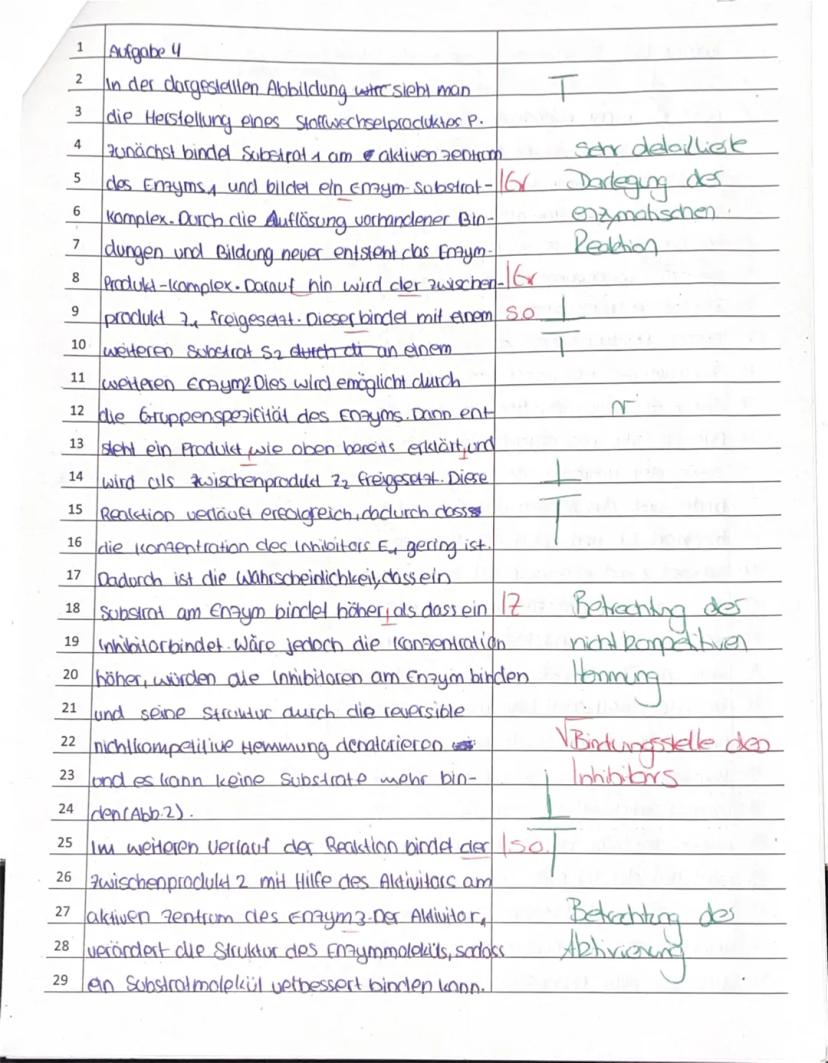 1 Aufgabe 4
2 In der dargestellten Abbildung sieht man
3 die Herstellung eines Stoffwechselproduktes P.
4 Zunächst bindet Substrat 1 am aktiven Zentrum sehr detaillierte
5 des Enzyms 1 und bildet ein Enzym-Substrat- |Gr Darlegung des
6 komplex. Durch die Auflösung vorhandener Bin- enzymatischen
7 dungen und Bildung neuer entsteht das Enzym- Reaktion
8 Produkt-komplex. Darauf hin wird der zwischen- |Gr
9 produkt Z1 freigesetzt. Dieser bindet mit einem s.o.
10 weiteren Substrat S2 durch di an einem
11 weiteren Enzym2. Dies wird emöglicht durch
12 die Gruppenspezifität des Enzyms. Dann ent-
13 steht ein Produkt, wie oben bereits erklärt, und
14 wird als Zwischenprodukt Z2 freigesetzt. Diese
15 Reaktion verläuft erfolgreich, dadurch dass
16 die Konzentration des Inhibitors E1 gering ist.
17 Dadurch ist die Wahrscheinlichkeit, dass ein
18 Substrat am Enzym bindet höher, als dass ein |Z Betrachtung der
19 Inhibitor bindet. Wäre jedoch die Konzentration nichtkompetitiven
20 höher, würden die Inhibitoren am Enzym binden Hemmung
21 und seine Struktur durch die reversible
22 nichtkompetitive Hemmung denaturieren √Bindungsstelle des
23 und es kann keine Substrate mehr bin- Inhibitors
24 den (Abb.2).
25 Im weiteren Verlauf der Reaktion bindet der |s.o.
26 Zwischenprodukt 2 mit Hilfe des Aktivitors am
27 aktiven Zentrum des Enzym3. Der Aktivitor, Betrachtung der
28 verändert die Struktur des Enzymmoleküls, sodass Aktivierung
29 ein Substratmolekül verbessert binden kann.